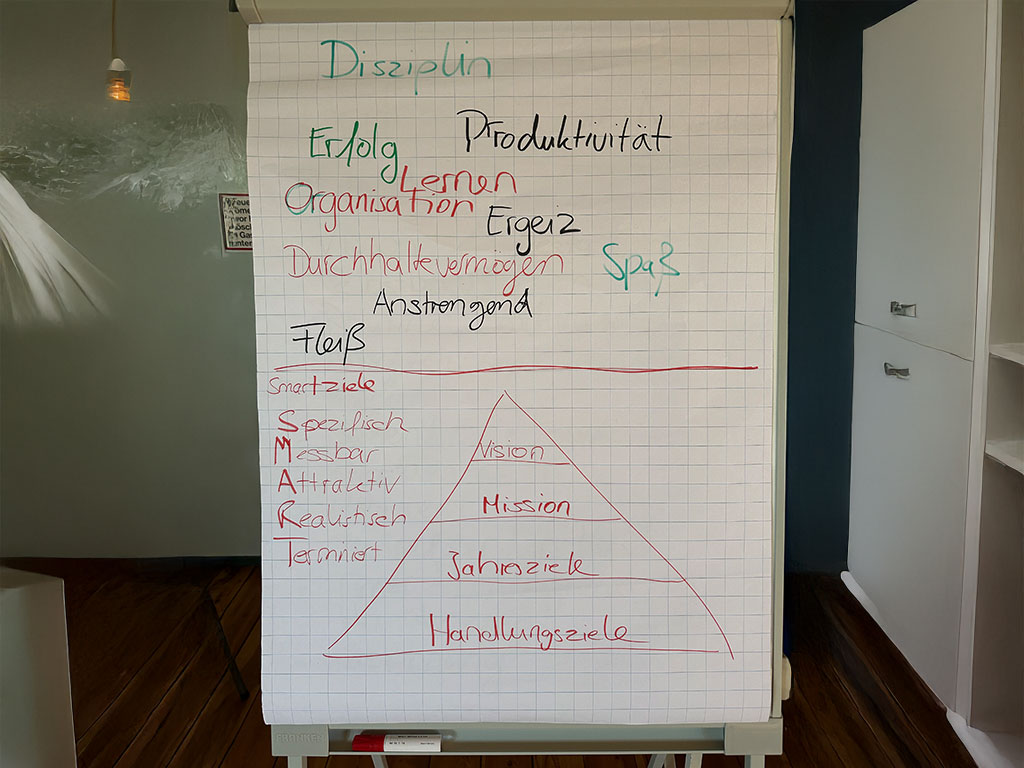 Disziplin
Erfolg
Produktivität
Lernen
Organisation
Ergeiz
Durchhaltevermögen
Spaß
Anstrengend
Fleiß
Smartziele
Spezifisch
Messbar
Attraktiv
Realistisch
Terminiert
Vision
Mission
Jahresziele
Handlungsziele
FRANKEN